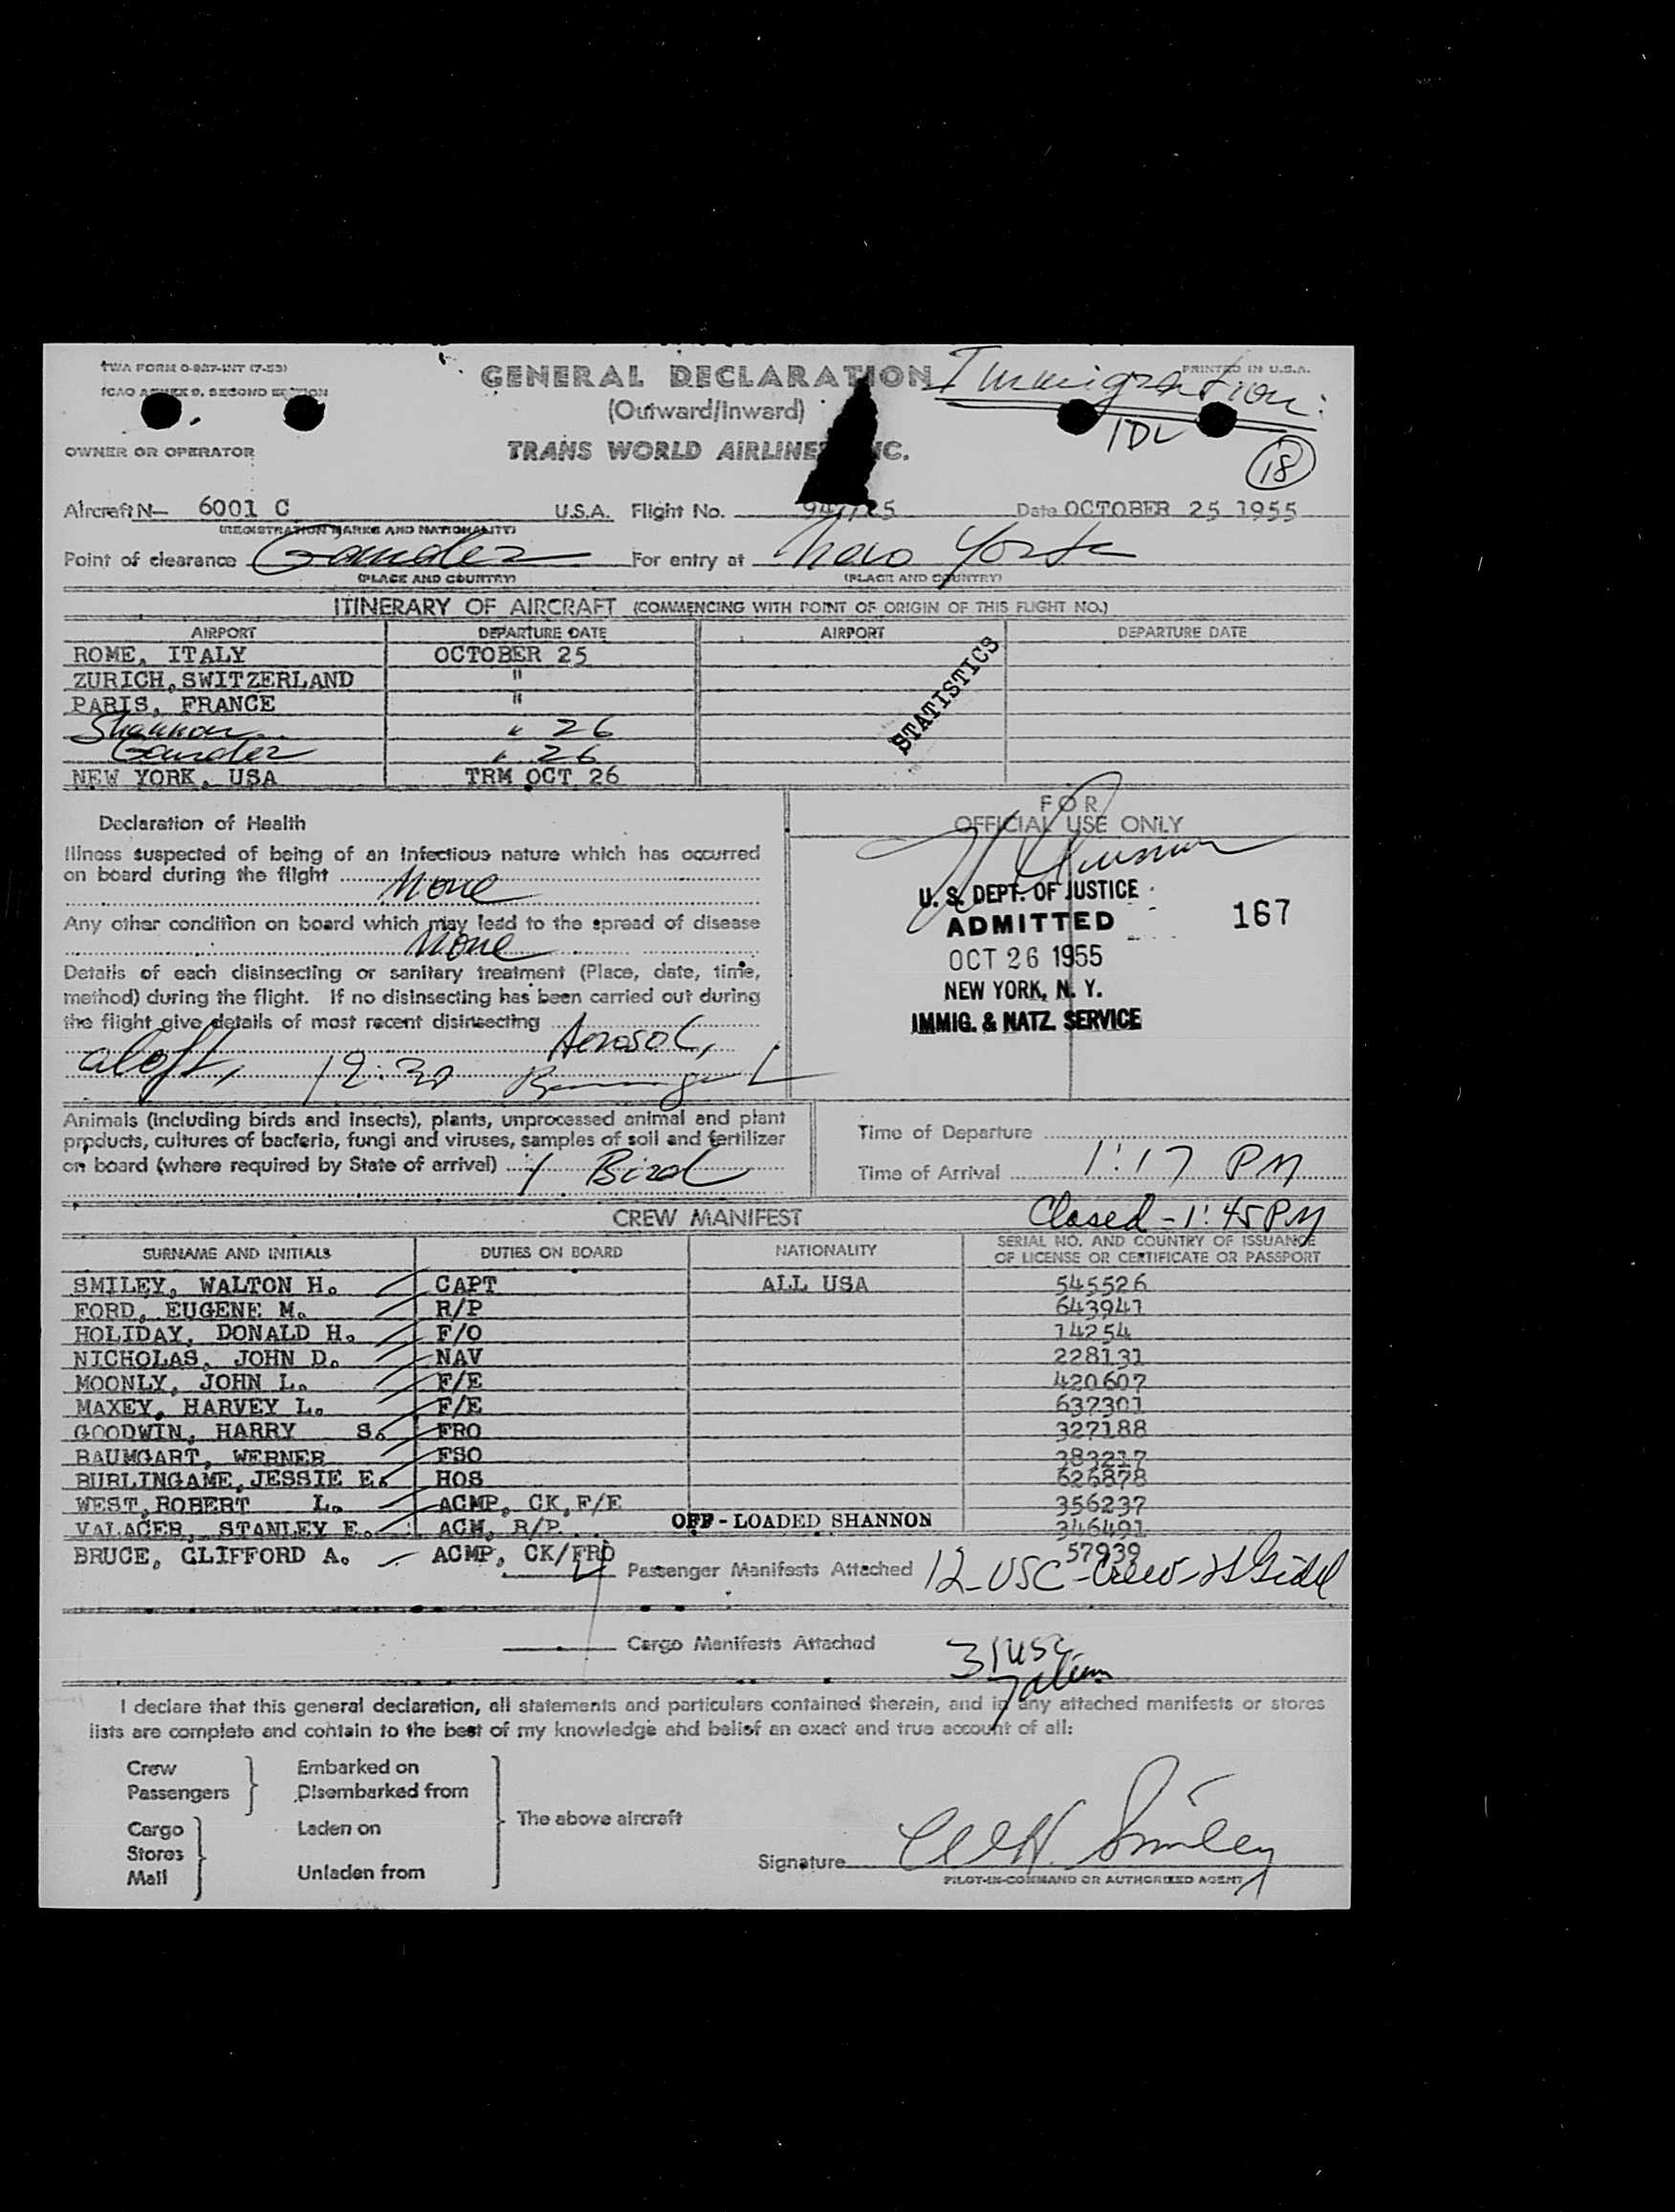 TWA FORM O-927-INT (7-53)
GENERAL DECLARATION
Immigration:
PRINTED IN U.S.A.
ICAO ANNEX 9, SECOND EDITION
(Outward/Inward)
IDL
OWNER OR OPERATOR
TRANS WORLD AIRLINES INC.
18
Aircraft N— 6001 C U.S.A. Flight No. Date OCTOBER 25 1955
(REGISTRATION MARKS AND NATIONALITY)
Point of clearance Gander For entry at New York
(PLACE AND COUNTRY) (PLACE AND COUNTRY)
ITINERARY OF AIRCRAFT (COMMENCING WITH POINT OF ORIGIN OF THIS FLIGHT NO.)
AIRPORT DEPARTURE DATE AIRPORT DEPARTURE DATE
ROME, ITALY OCTOBER 25
ZURICH, SWITZERLAND "
PARIS, FRANCE "
Shannon " 26
Gander " 26
NEW YORK, USA TRM OCT 26
STATISTICS
Declaration of Health
Illness suspected of being of an infectious nature which has occurred
on board during the flight None
Any other condition on board which may lead to the spread of disease
None
Details of each disinsecting or sanitary treatment (Place, date, time,
method) during the flight. If no disinsecting has been carried out during
the flight give details of most recent disinsecting Aerosol,
aloft, 12:30
FOR
OFFICIAL USE ONLY
U. S. DEPT. OF JUSTICE
ADMITTED 167
OCT 26 1955
NEW YORK, N. Y.
IMMIG. & NATZ. SERVICE
Animals (including birds and insects), plants, unprocessed animal and plant
products, cultures of bacteria, fungi and viruses, samples of soil and fertilizer
on board (where required by State of arrival) 1 Bird
Time of Departure
Time of Arrival 1:17 PM
CREW MANIFEST Closed - 1:45 PM
SURNAME AND INITIALS DUTIES ON BOARD NATIONALITY SERIAL NO. AND COUNTRY OF ISSUANCE
OF LICENSE OR CERTIFICATE OR PASSPORT
SMILEY, WALTON H. CAPT ALL USA 545526
FORD, EUGENE M. R/P 643941
HOLIDAY, DONALD H. F/O 14254
NICHOLAS, JOHN D. NAV 228131
MOONLY, JOHN L. F/E 420607
MAXEY, HARVEY L. F/E 637301
GOODWIN, HARRY S. FRO 327188
BAUMGART, WERNER FSO 383217
BURLINGAME, JESSIE E. HOS 626878
WEST, ROBERT L. ACMP, CK, F/E 356237
VALACER, STANLEY E. ACM, R/P OFF-LOADED SHANNON 346491
BRUCE, CLIFFORD A. ACMP, CK/FRO 57939
Passenger Manifests Attached 12-USC-Crew
Cargo Manifests Attached 31 USC
I declare that this general declaration, all statements and particulars contained therein, and in any attached manifests or stores
lists are complete and contain to the best of my knowledge and belief an exact and true account of all:
Crew Embarked on
Passengers Disembarked from
The above aircraft
Cargo Laden on
Stores
Mail Unladen from
Signature W H. Smiley
PILOT-IN-COMMAND OR AUTHORIZED AGENT